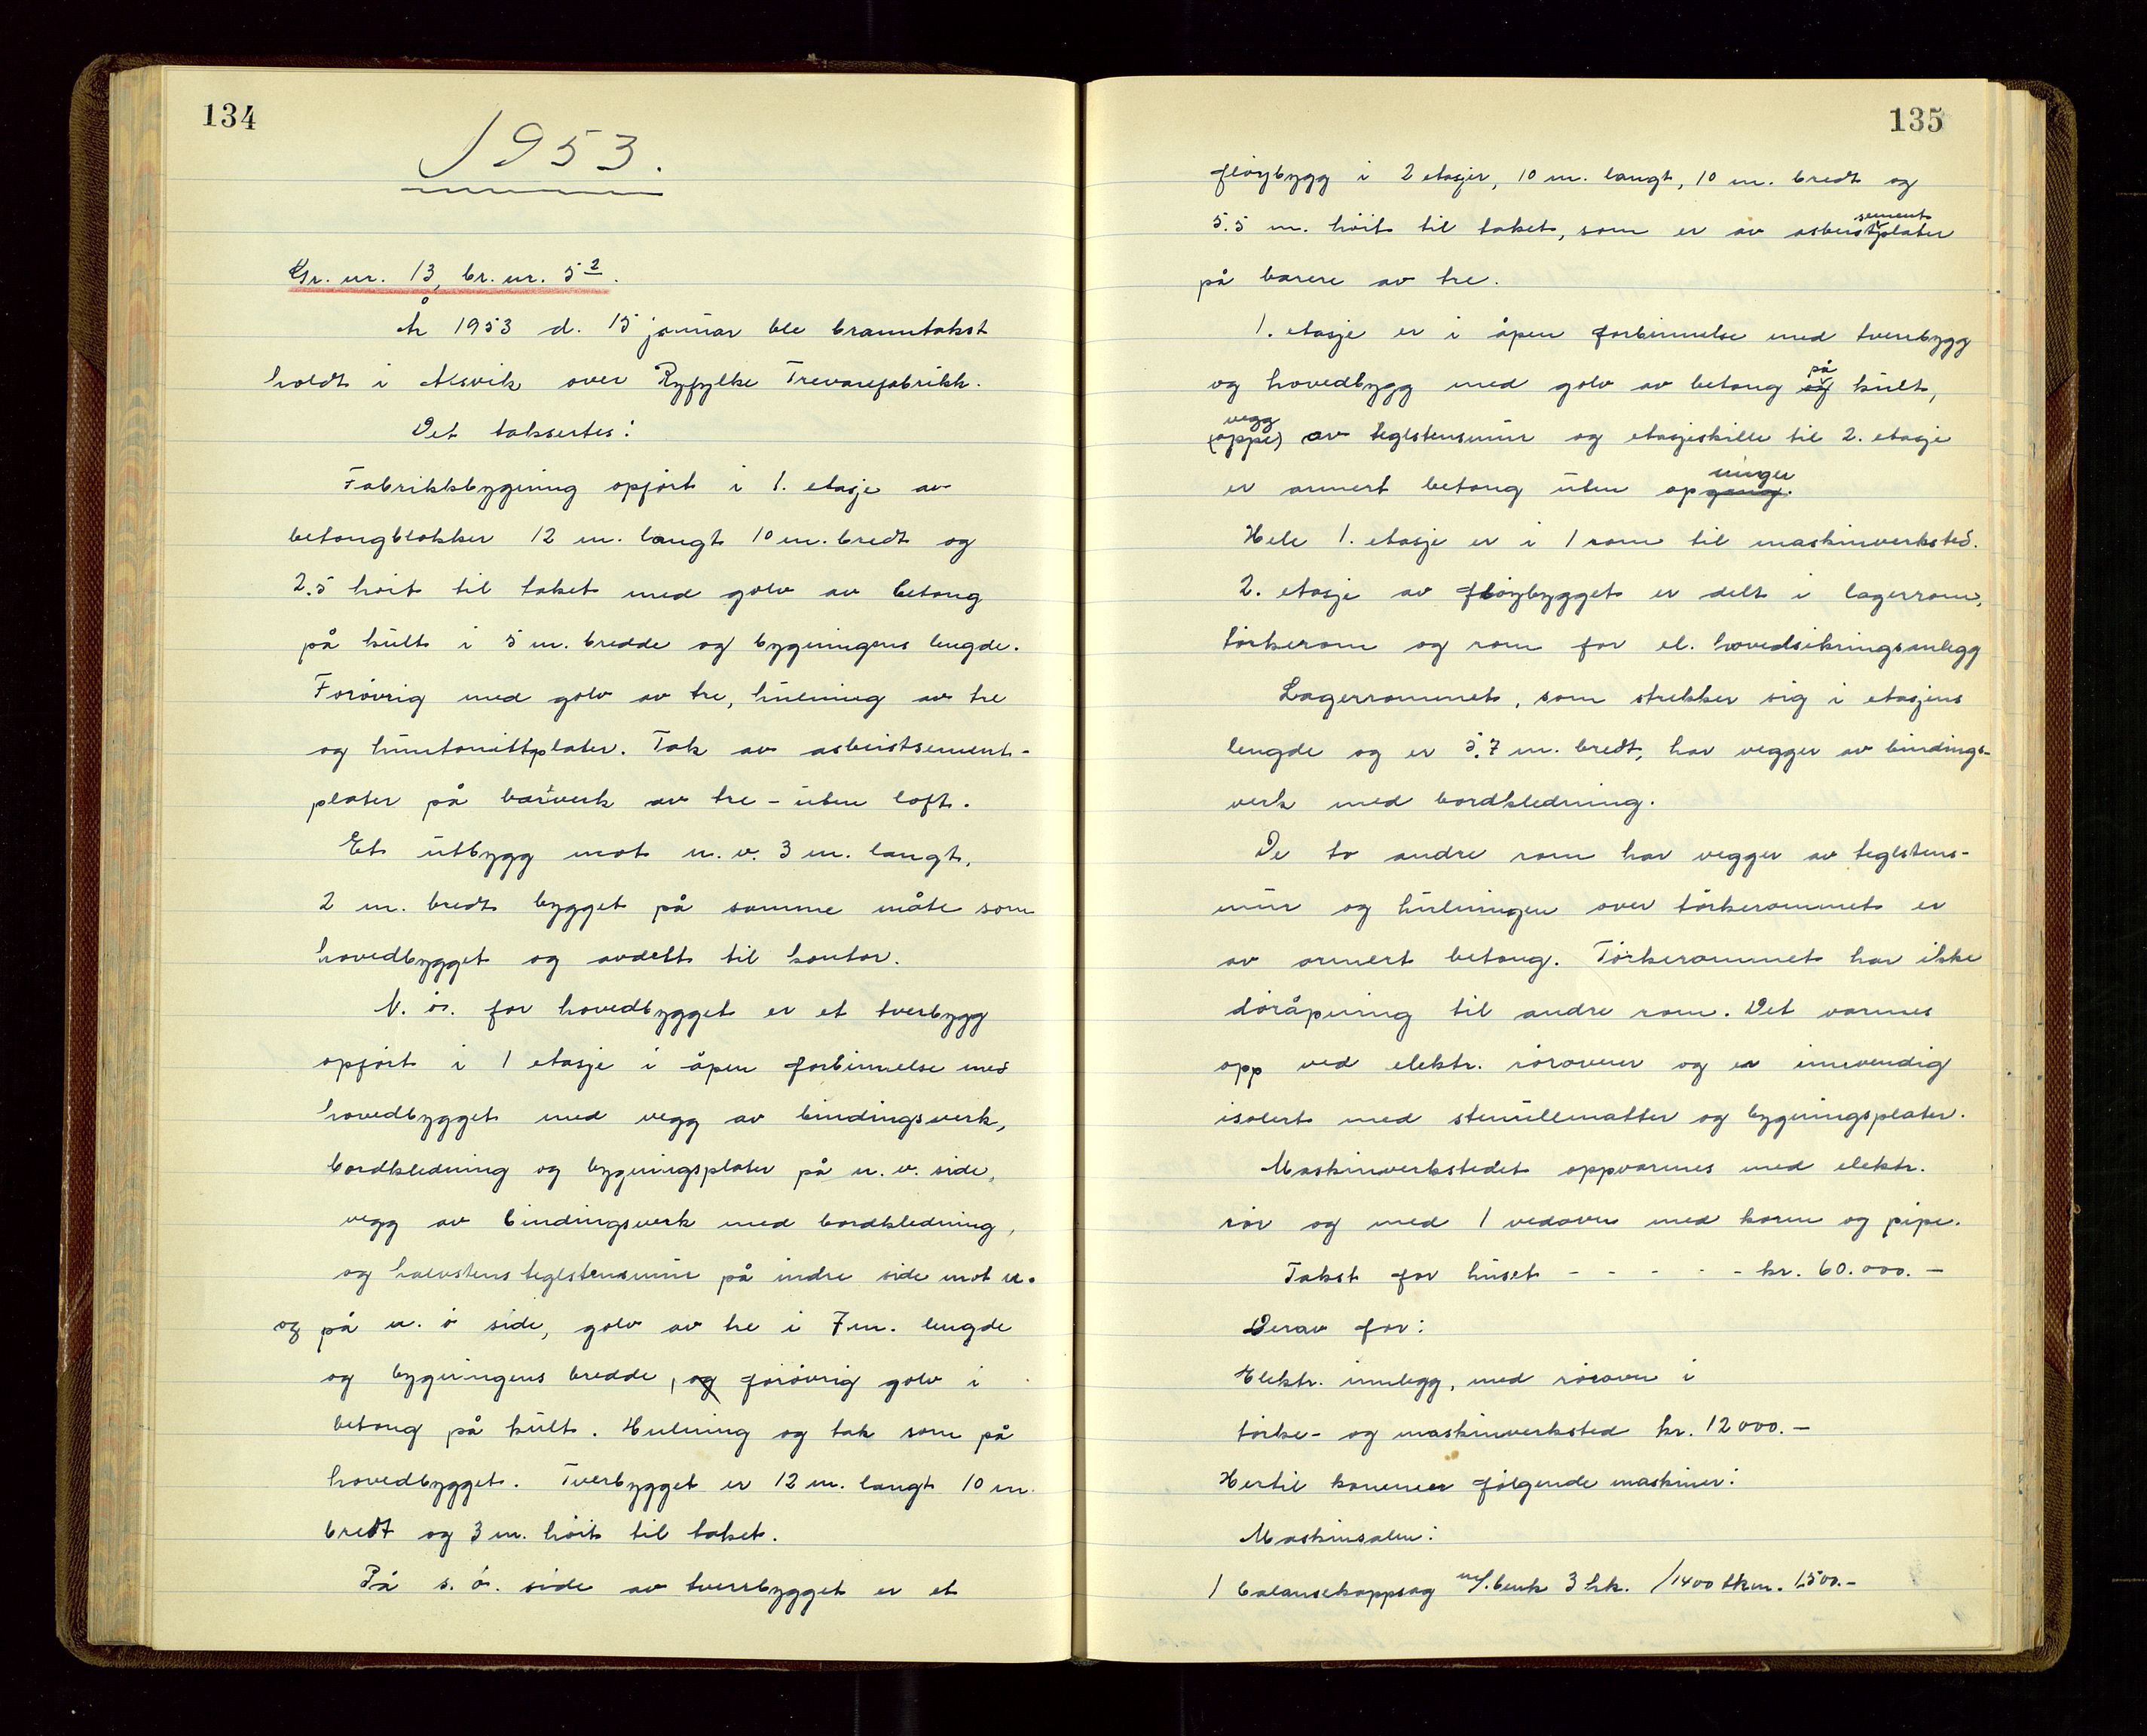 134
1953.
Gr. nr. 13, br. nr. 5²
År 1953 d. 15 januar ble branntakst
holdt i Alsvik over Ryfylke Trevarefabrikk.
Det taksertes:
Fabrikkbygning opført i 1. etasje av
betongblokker 12 m. langt 10 m. bredt og
2.5 høit til taket med golv av betong
på kult i 5 m. bredde og bygningens lengde.
Forøvrig med golv av tre, hulning av tre
og huntonittplater. Tak av asbestsement-
plater på barverk av tre - uten loft.
Et utbygg mot n. v. 3 m. langt,
2 m. bredt bygget på samme måte som
hovedbygget og avdelt til kontor.
N. ø. for hovedbygget er et tverbygg
opført i 1 etasje i åpen forbinnelse med
hovedbygget med vegg av bindingsverk,
bordkledning og bygningsplater på n. v. side,
vegg av bindingsverk med bordkledning,
og halvstens teglstensmur på indre side mot n.
og på n. ø side, golv av tre i 7 m. lengde
og bygningens bredde, og forøvrig golv i
betong på kult. Hulning og tak som på
hovedbygget. Tverbygget er 12 m. langt 10 m.
bredt og 3 m. høit til taket.
På s. ø. side av tverrbygget er et
135
fløybygg i 2 etasjer, 10 m. langt, 10 m. bredt og
5.5 m. høit til taket, som er av asbestsementplater
på barere av tre.
1. etasje er i åpen forbinnelse med tverrbygg
og hovedbygg med golv av betong og på kult,
(oppe) vegg av teglstensmur og etasjeskille til 2. etasje
er armert betong uten opgang. ninger
Hele 1. etasje er i 1 rom til maskinverksted.
2. etasje av fløybygget er delt i lagerrom,
tørkerom og rom for el. hovedsikringsanlegg
Lagerrommet, som strekker sig i etasjens
lengde og er 5.7 m. bredt, har vegger av bindings-
verk med bordkledning.
De to andre rom har vegger av teglstens-
mur og hulningen over tørkerommet er
av armert betong. Tørkerommet har ikke
døråpning til andre rom. Det varmes
opp ved elektr. rørovner og er innvendig
isolert med stenullmatter og bygningsplater.
Maskinverkstedet oppvarmes med elektr.
rør og med 1 vedovn med korn og pipe.
Takst for huset - - - - - kr. 60.000.-
Derav for:
Elektr. innlegg, med rørovn i
tørke- og maskinverksted kr. 12 000.-
Hertil kommer følgende maskiner:
Maskinsalen:
1 balansekappsag m/. benk 3 hk. /1400 tkm. 1500.-